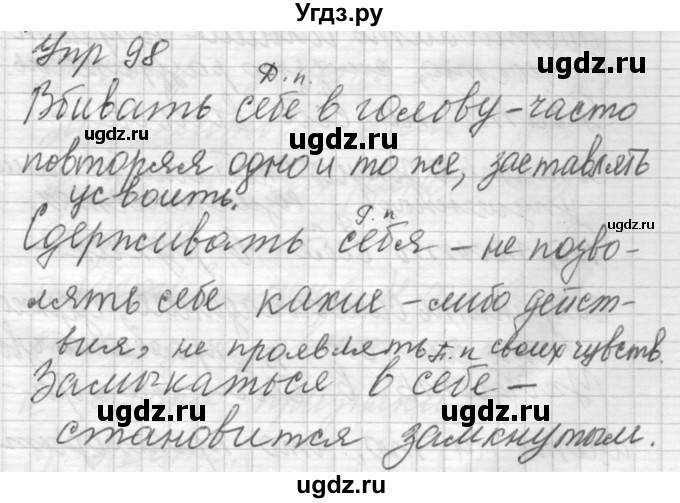 Угдз.ру
Упр 98
Д.п.
Вбивать себе в голову - часто
повторяя одно и то же, заставлять
усвоить.
Р.п
Сдерживать себя - не позво-
лять себе какие-либо дейст-
вия, не проявлять своих чувств.
П.п
Замыкаться в себе -
становится замкнутым.
ugdz.ru
ugdz.ru
ugdz.ru
ugdz.ru
ugdz.ru
ugdz.ru
ugdz.ru
ugdz.ru
ugdz.ru